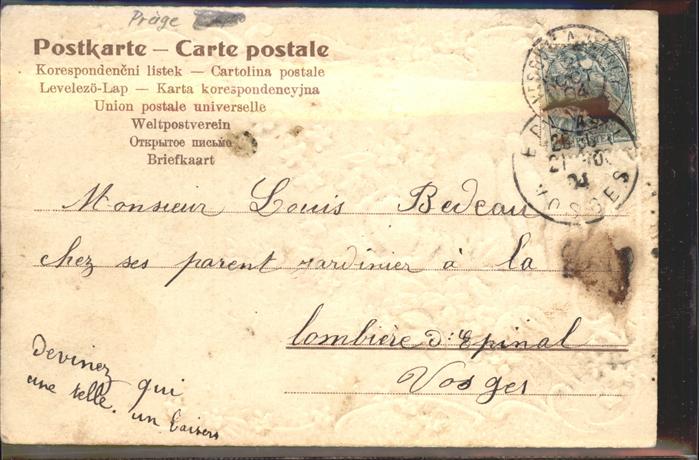 Präge
Postkarte — Carte postale
Korespondenčni listek — Cartolina postale
Levelező-Lap — Karta korespondencyjna
Union postale universelle
Weltpostverein
Открытое письмо
Briefkaart
Monsieur Louis Bedeau
chez ses parent jardinier à la
lombière d'Epinal
Vosges
Devinez qui
une telle. un baisers
VOSGES